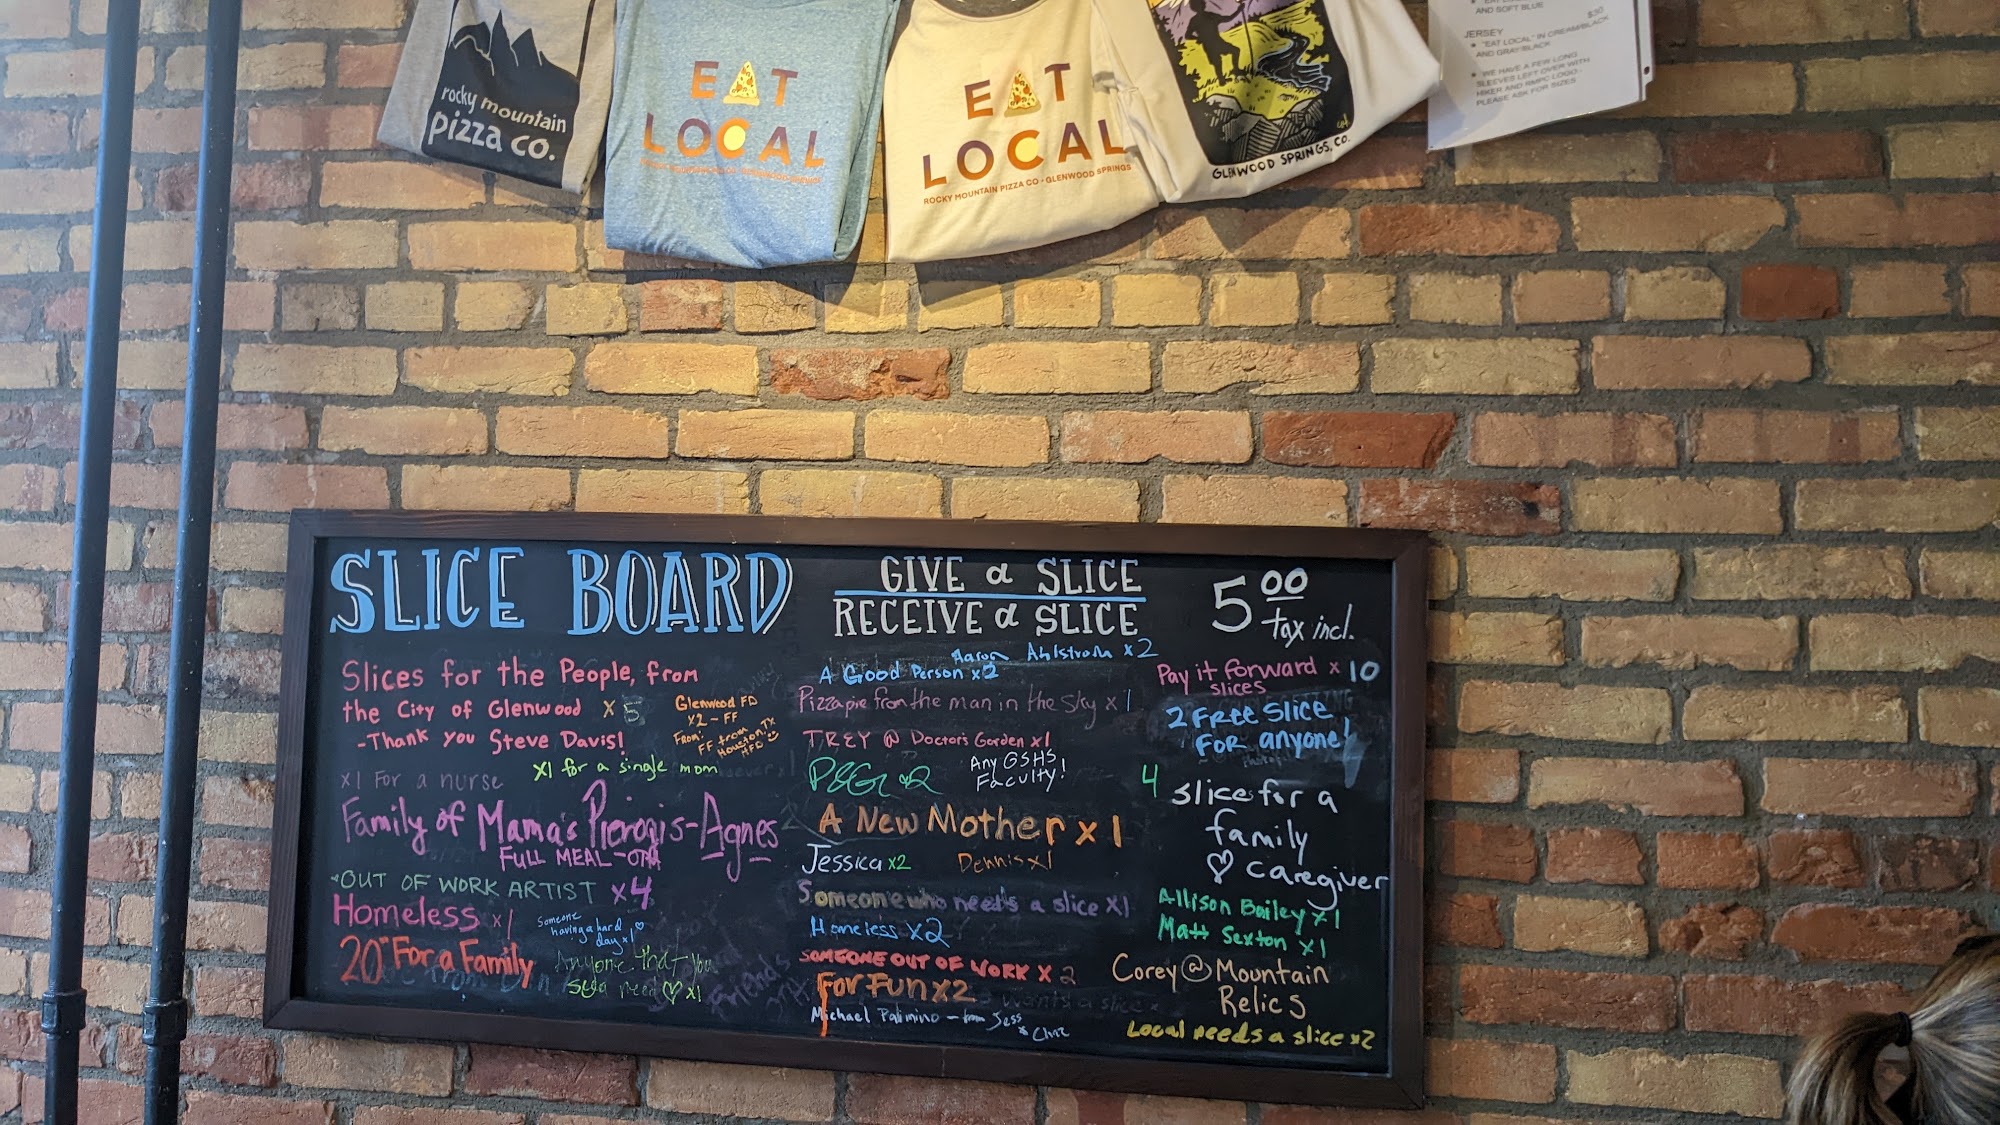 rocky mountain
pizza co.
EAT
LOCAL
EAT
LOCAL
ROCKY MOUNTAIN PIZZA CO • GLENWOOD SPRINGS
GLENWOOD SPRINGS, CO.
AND SOFT BLUE
$30
JERSEY
• "EAT LOCAL" IN CREAM/BLACK
AND GRAY/BLACK
• WE HAVE A FEW LONG
SLEEVES LEFT OVER WITH
HIKER AND RMPC LOGO -
PLEASE ASK FOR SIZES
SLICE BOARD
GIVE a SLICE
RECEIVE a SLICE
5.00
tax incl.
Slices for the People, from
the City of Glenwood x 5
-Thank you Steve Davis!
Glenwood FD
x2 - FF
From:
FF from
Houston, TX
HFD
x1 for a single mom
x1 For a nurse
Family of Mama's Pierogis-Agnes
FULL MEAL-
OUT OF WORK ARTIST x4
Homeless x1
Someone
having a hard
day x1
20 For a Family
Anyone that you
need ♡ x1
Aaron Ahlstrom x2
A Good Person x2
Pizza pie from the man in the sky x 1
TREY @ Doctor's Garden x1
x2
Any GSHS
Faculty!
A New Mother x 1
Jessica x2
Dennis x1
Someone who needs a slice x1
Homeless x2
SOMEONE OUT OF WORK x 2
For Fun x2
Michael Palimino - from Jess
&
Pay it forward x 10
slices
2 Free Slice
For anyone!
4 slice for a
family
♡ caregiver
Allison Bailey x1
Matt Sexton x1
Corey @ Mountain
Relics
Local needs a slice x2